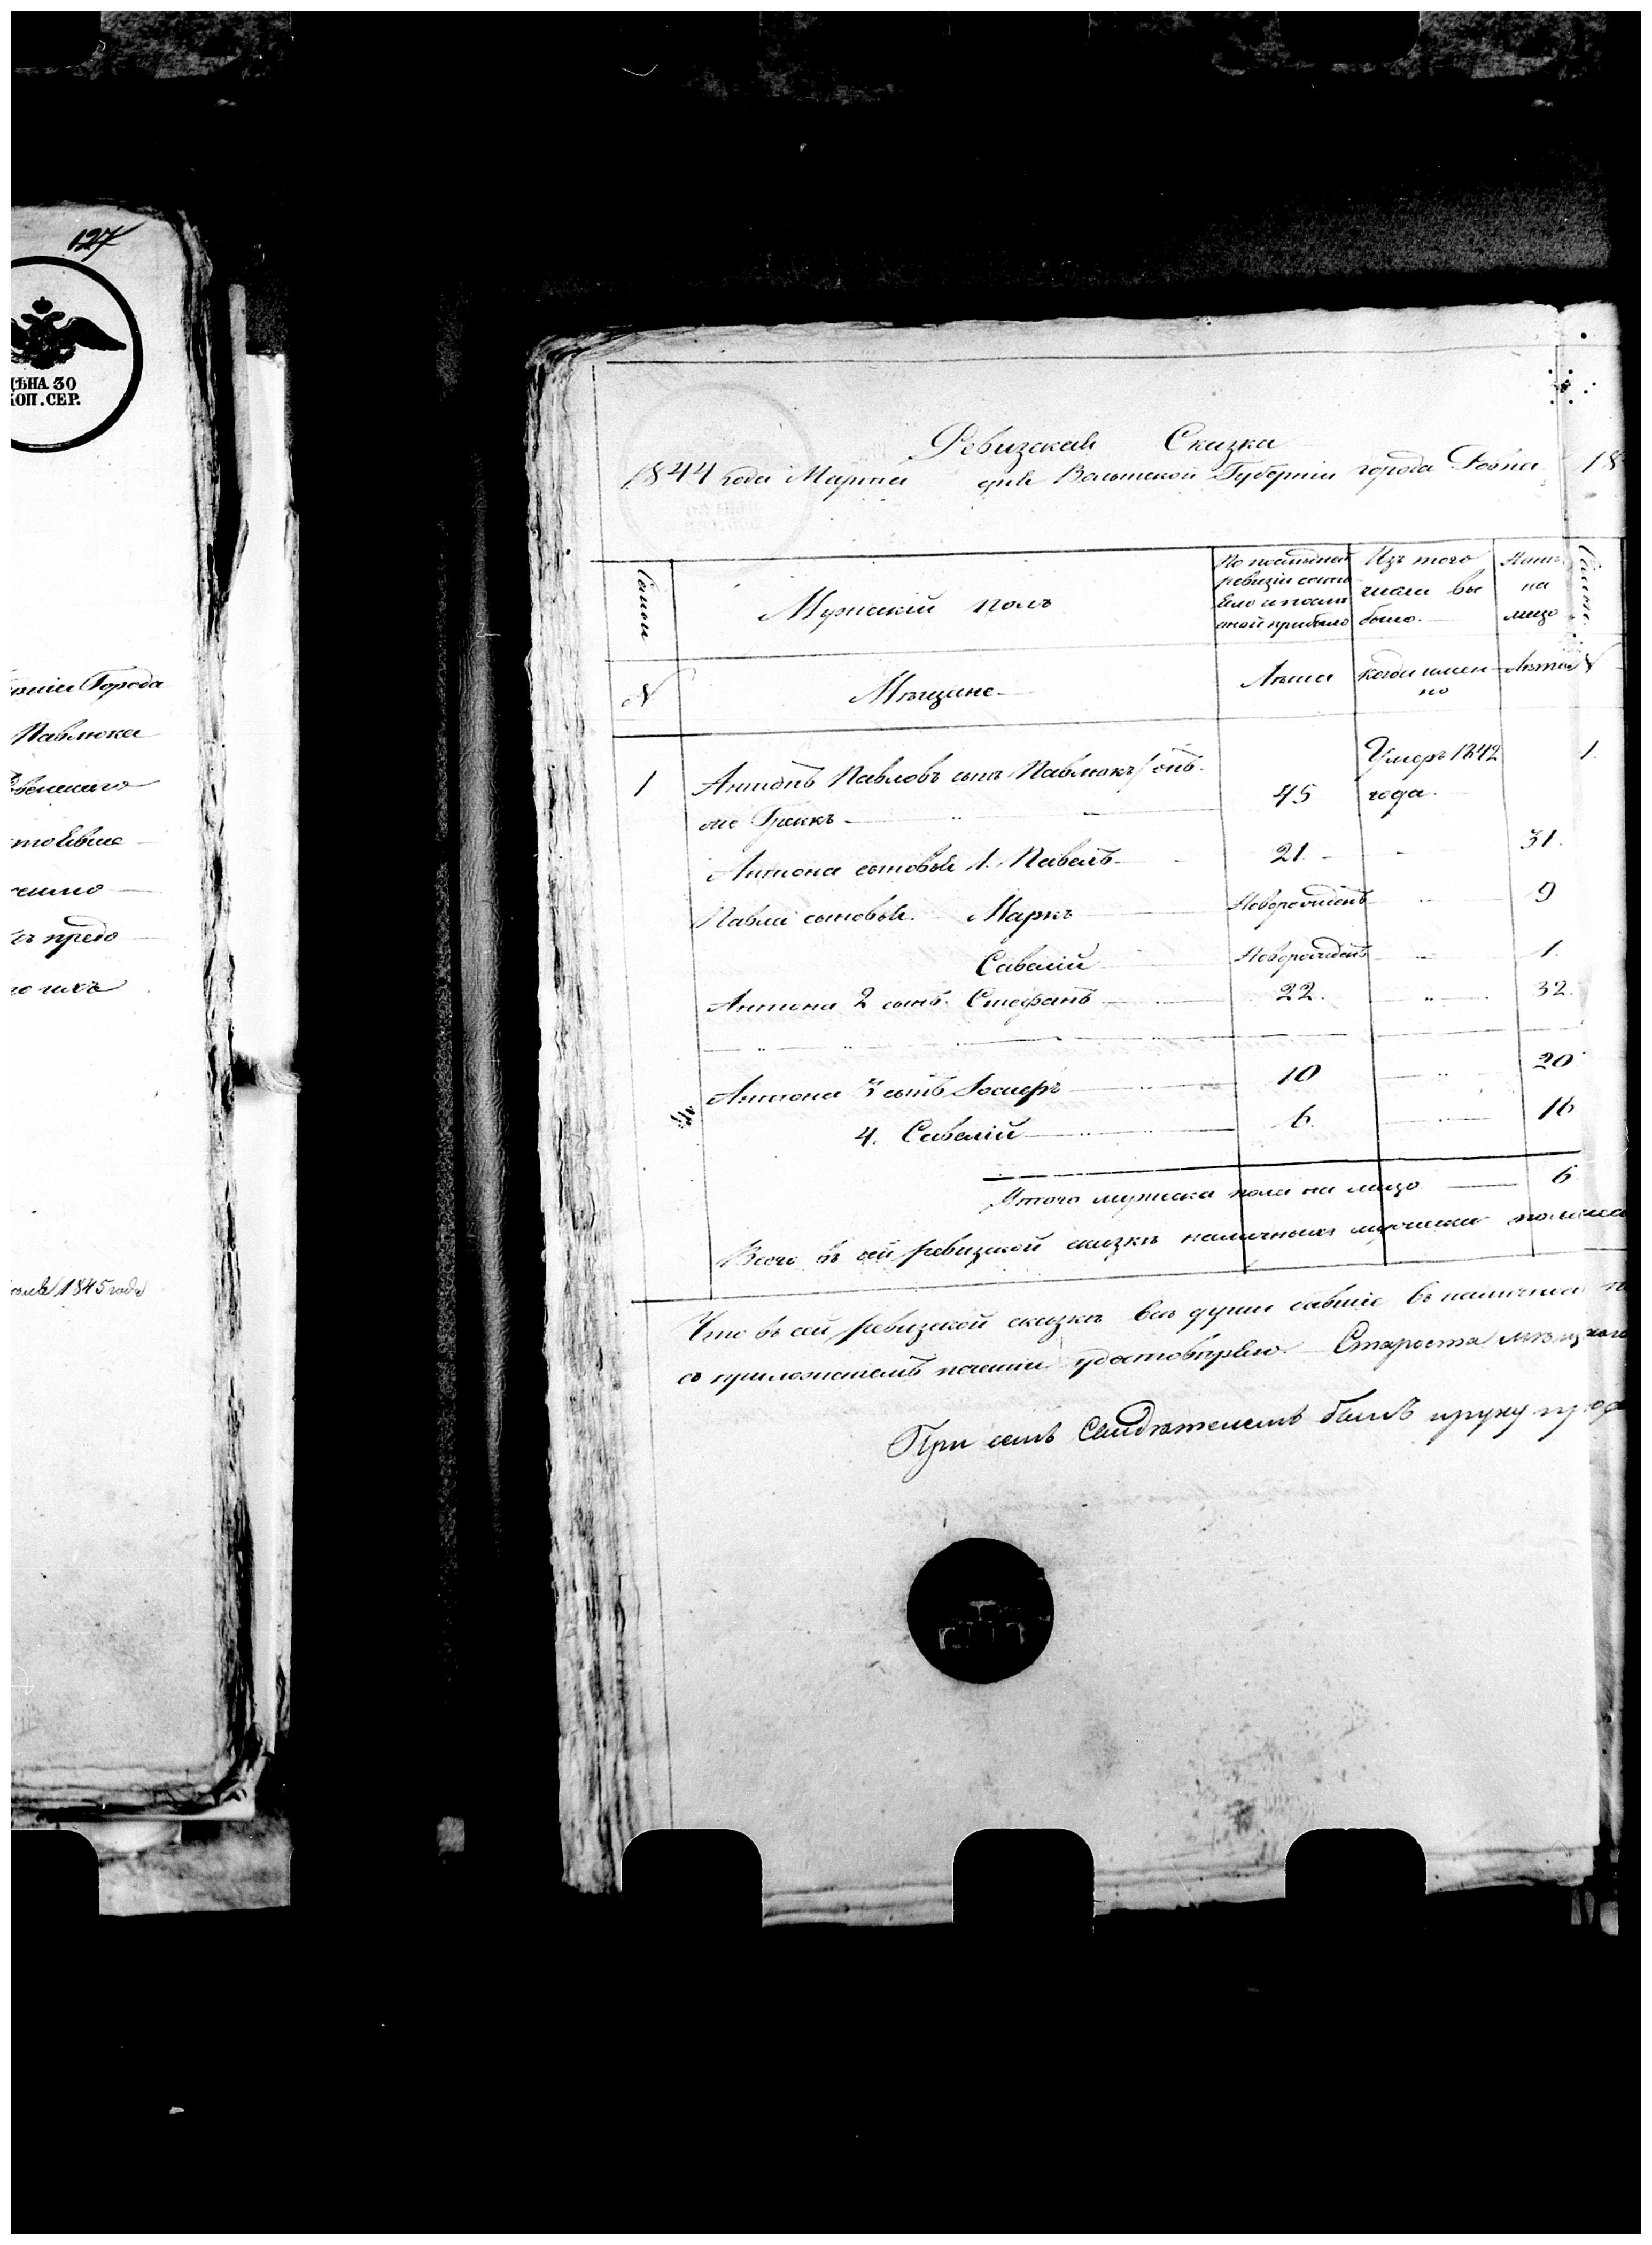 127
ЦѢНА 30
КОП. СЕР.
Города
Павлюка
предо
1845 года
Ревизская Сказка
1844 года Марта дня Волынской Губерніи города Ровна
18
Семьи
Мужескій полъ
По последней
ревизіи состо
яло и после
оной прибыло
Изъ того
числа вы
было.
Ныне
на
лицо
№
Мѣщане
Лѣта
когда имен
но
Лѣта
№
1
Антонъ Павловъ сынъ Павлюкъ онъ
же Гракъ
45
Умеръ 1842
года.
1.
Антона сыновья 1. Павелъ
21.
31.
Павла сыновья. Маркъ
Новорожденъ
9
Савелій
Новорожденъ
1.
Антона 2 сынъ Стефанъ
22.
32.
Антона 3 сынъ Іосифъ
10
20
4. Савелій
6.
16
Итого мужеска пола на лицо
6
Всего въ сей ревизской сказкѣ наличныхъ мужеска пола
Что въ сей ревизской сказкѣ всѣ души въ наличіи
съ приложеніемъ печати удостовѣряю. Староста
При семъ Свидѣтелемъ былъ и руку